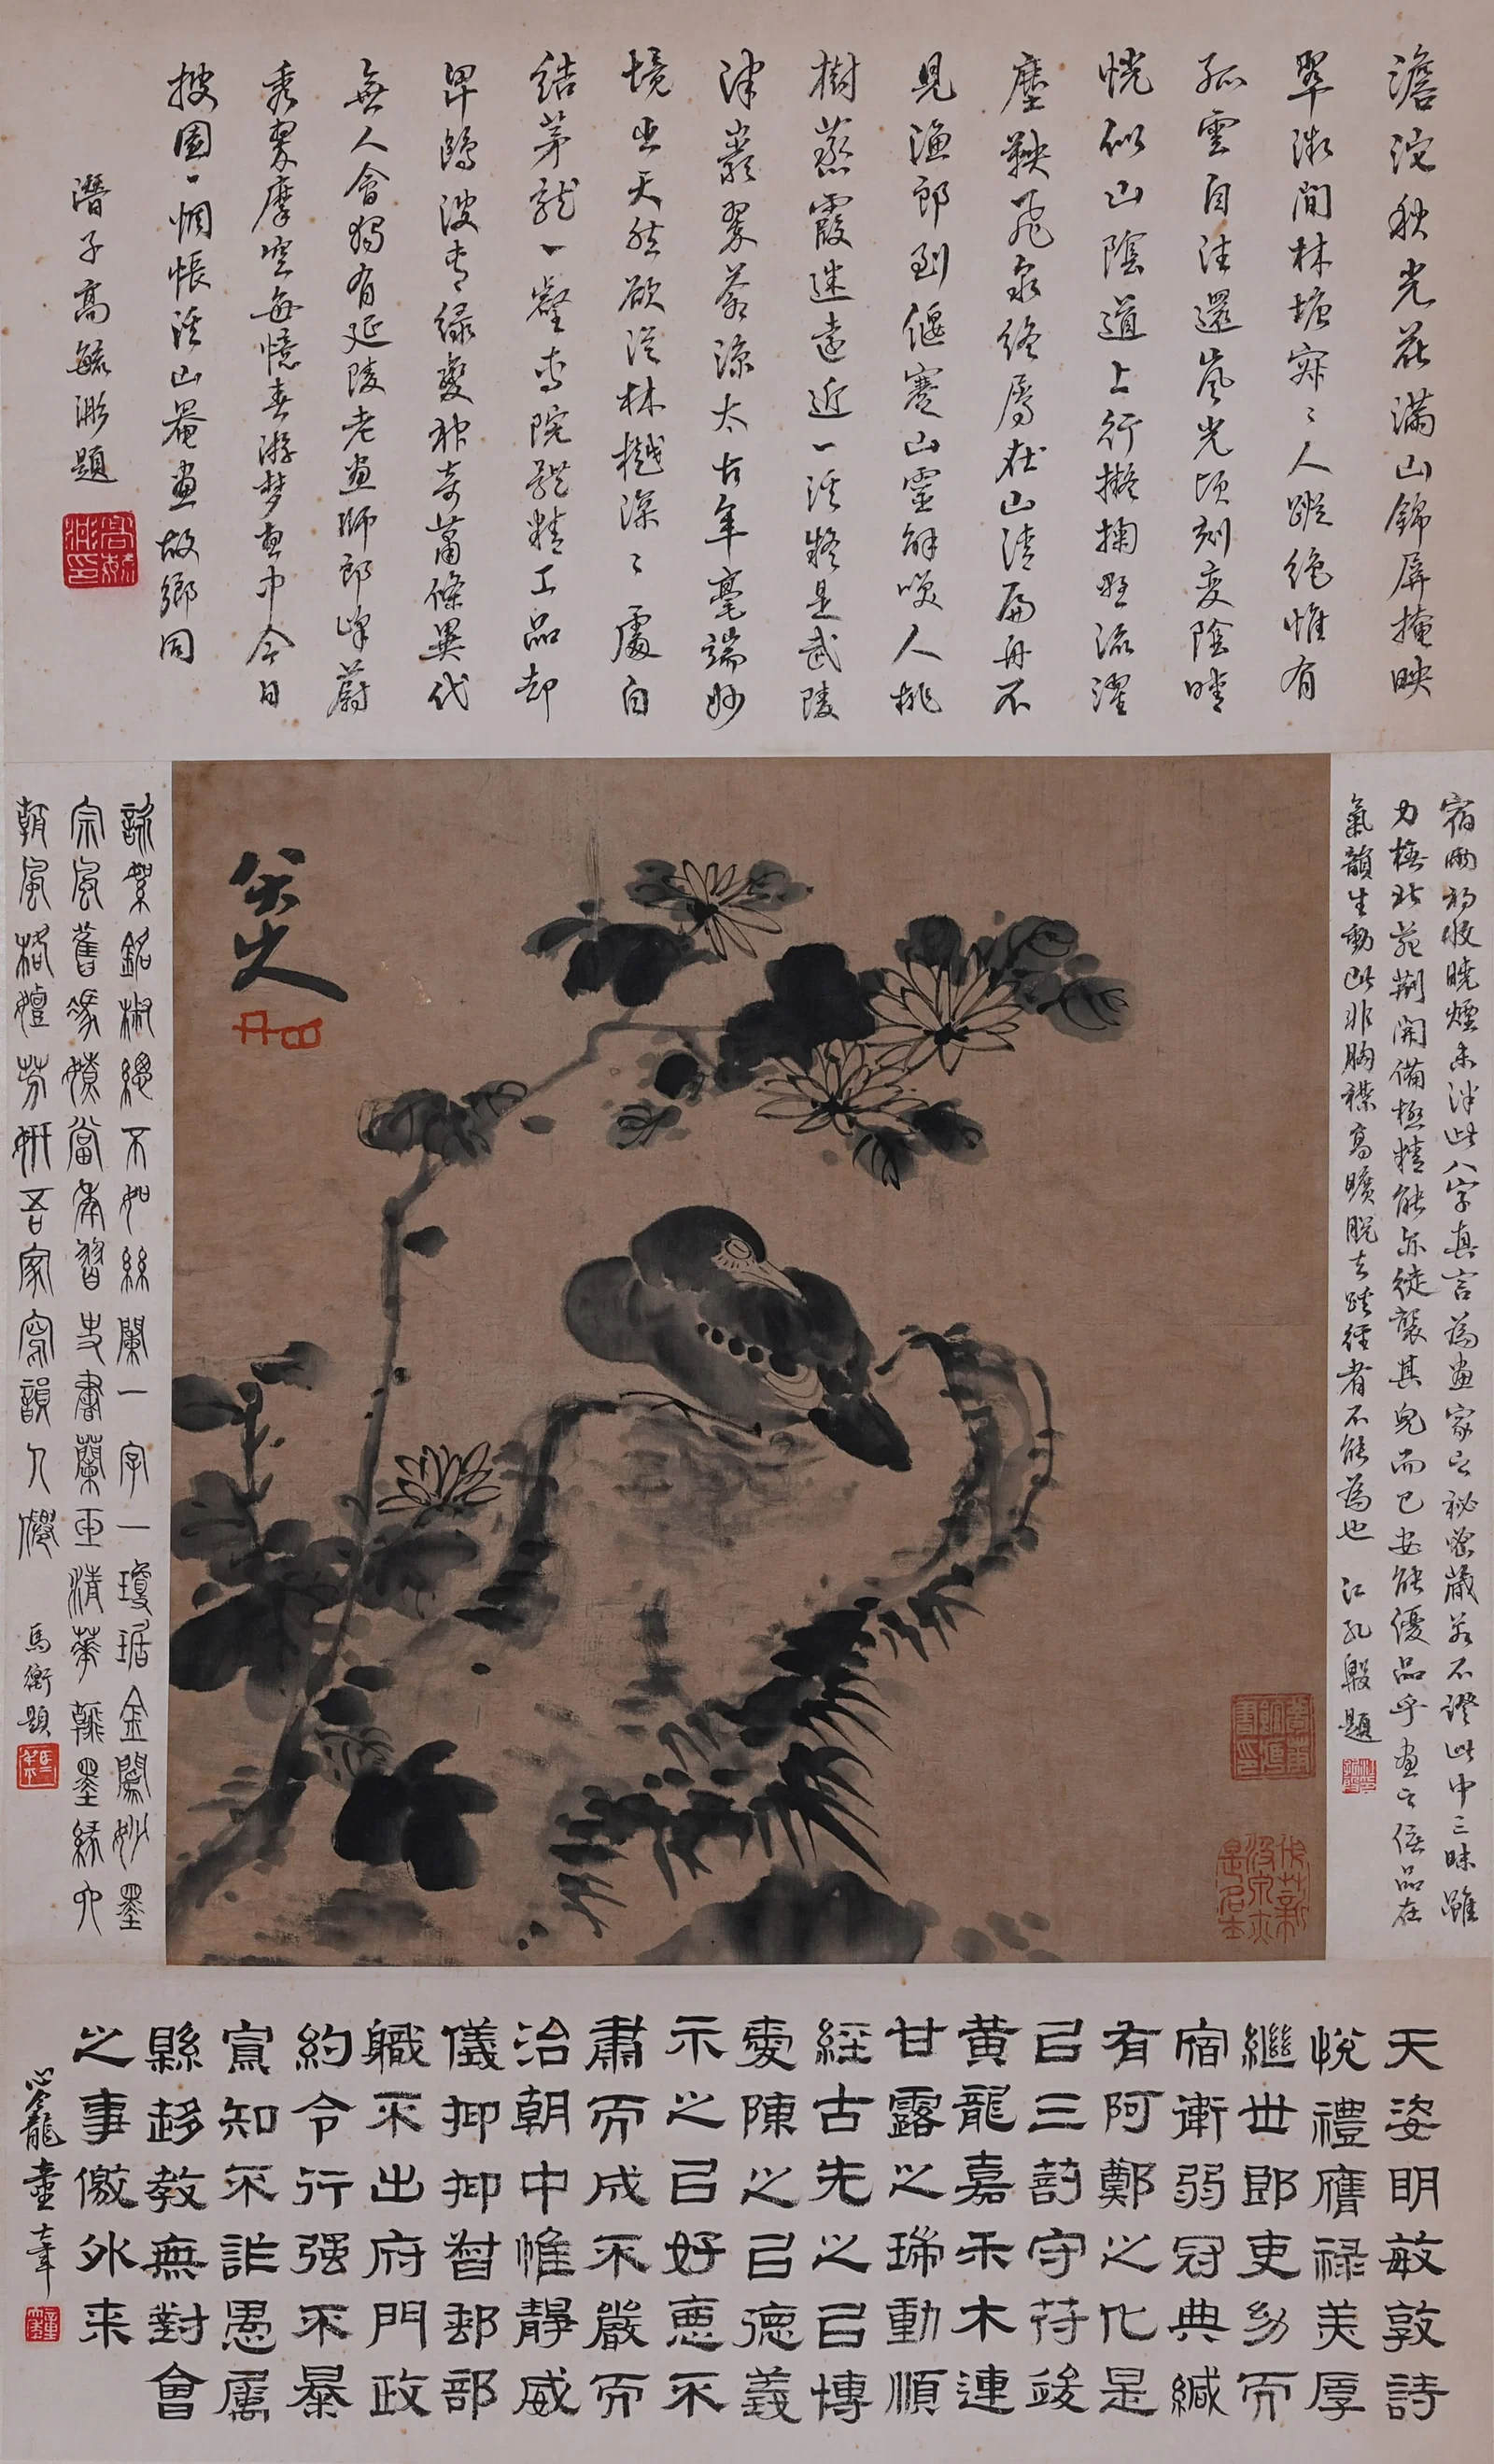 澹沱秋光花滿山錦屏掩映
翠微間林塘寂寂人蹤絕惟有
孤雲自往還嵐光頃刻變陰晴
恍似山陰道上行擬掬野流濯
塵鞅飛泉終屬在山清扁舟不
見漁郎到偃蹇山靈解咲人桃
樹蒸霞迷遠近一溪疑是武陵
津巖翠蒼涼太古年毫端妙
境出天然欲從林樾深深處自
結茅龍一
院體精工品却
卑鷗波青綠變神奇蕭條異代
無人會獨有延陵老畫師郎峰蔚
秀翠摩空每憶春游夢更中今日
披圖一惆悵溪山菴畫故鄉同
潛子高毓浵題
宿雨初收曉煙未泮此八字真言為畫家之祕密藏若不證此中三昧雖
力橅北苑荊關備極精能亦徒襲其皃而已安能優品乎畫之優品在
氣韻生動此非胸襟高曠脫去蹊徑者不能為也 江孔殷題
八大
詠絮銘椒總不如絲闌一字一瓊琚金閨妙墨
宗風舊
當年習史書蘭玉清華翰墨緣
韻
馬衡題
天姿明敏敦詩
悅禮膺祿美厚
繼世郎吏幼而
宿衛弱冠典緘
有阿鄭之化是
已三剖守符致
黃龍嘉禾木連
甘露之瑞動順
經古先之已博
愛陳之已德義
示之已好惡不
肅而成不嚴而
治朝中惟靜威
儀抑抑督郵部
職不出府門政
約令行强不暴
寡知不詐愚屬
縣趍教無對會
之事儌外来
心龕童大年